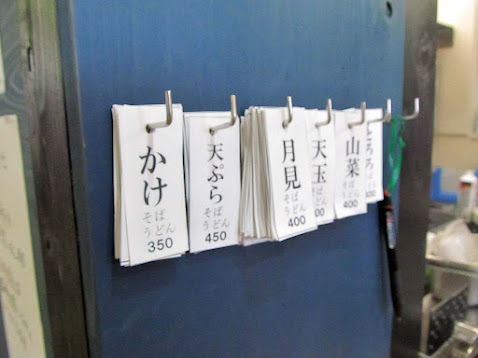 かけ
そば
うどん
350
天ぷら
そば
うどん
450
月見
そば
うどん
400
天玉
そば
うどん
山菜
そば
うどん
400
とろろ